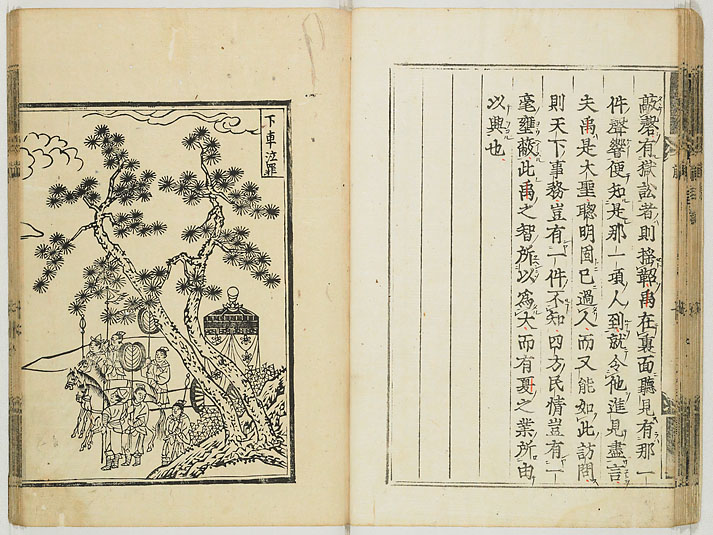 敲磬有獄訟者則搖鞀禹在裏面聽見有那一
件聲響便知是那一項人到就令他進見盡言
夫禹是大聖聰明固已過人而又能如此訪問
則天下事務豈有一件不知四方民情豈有一
毫壅蔽此禹之智所以為大而有夏之業所由
以興也
下車泣罪